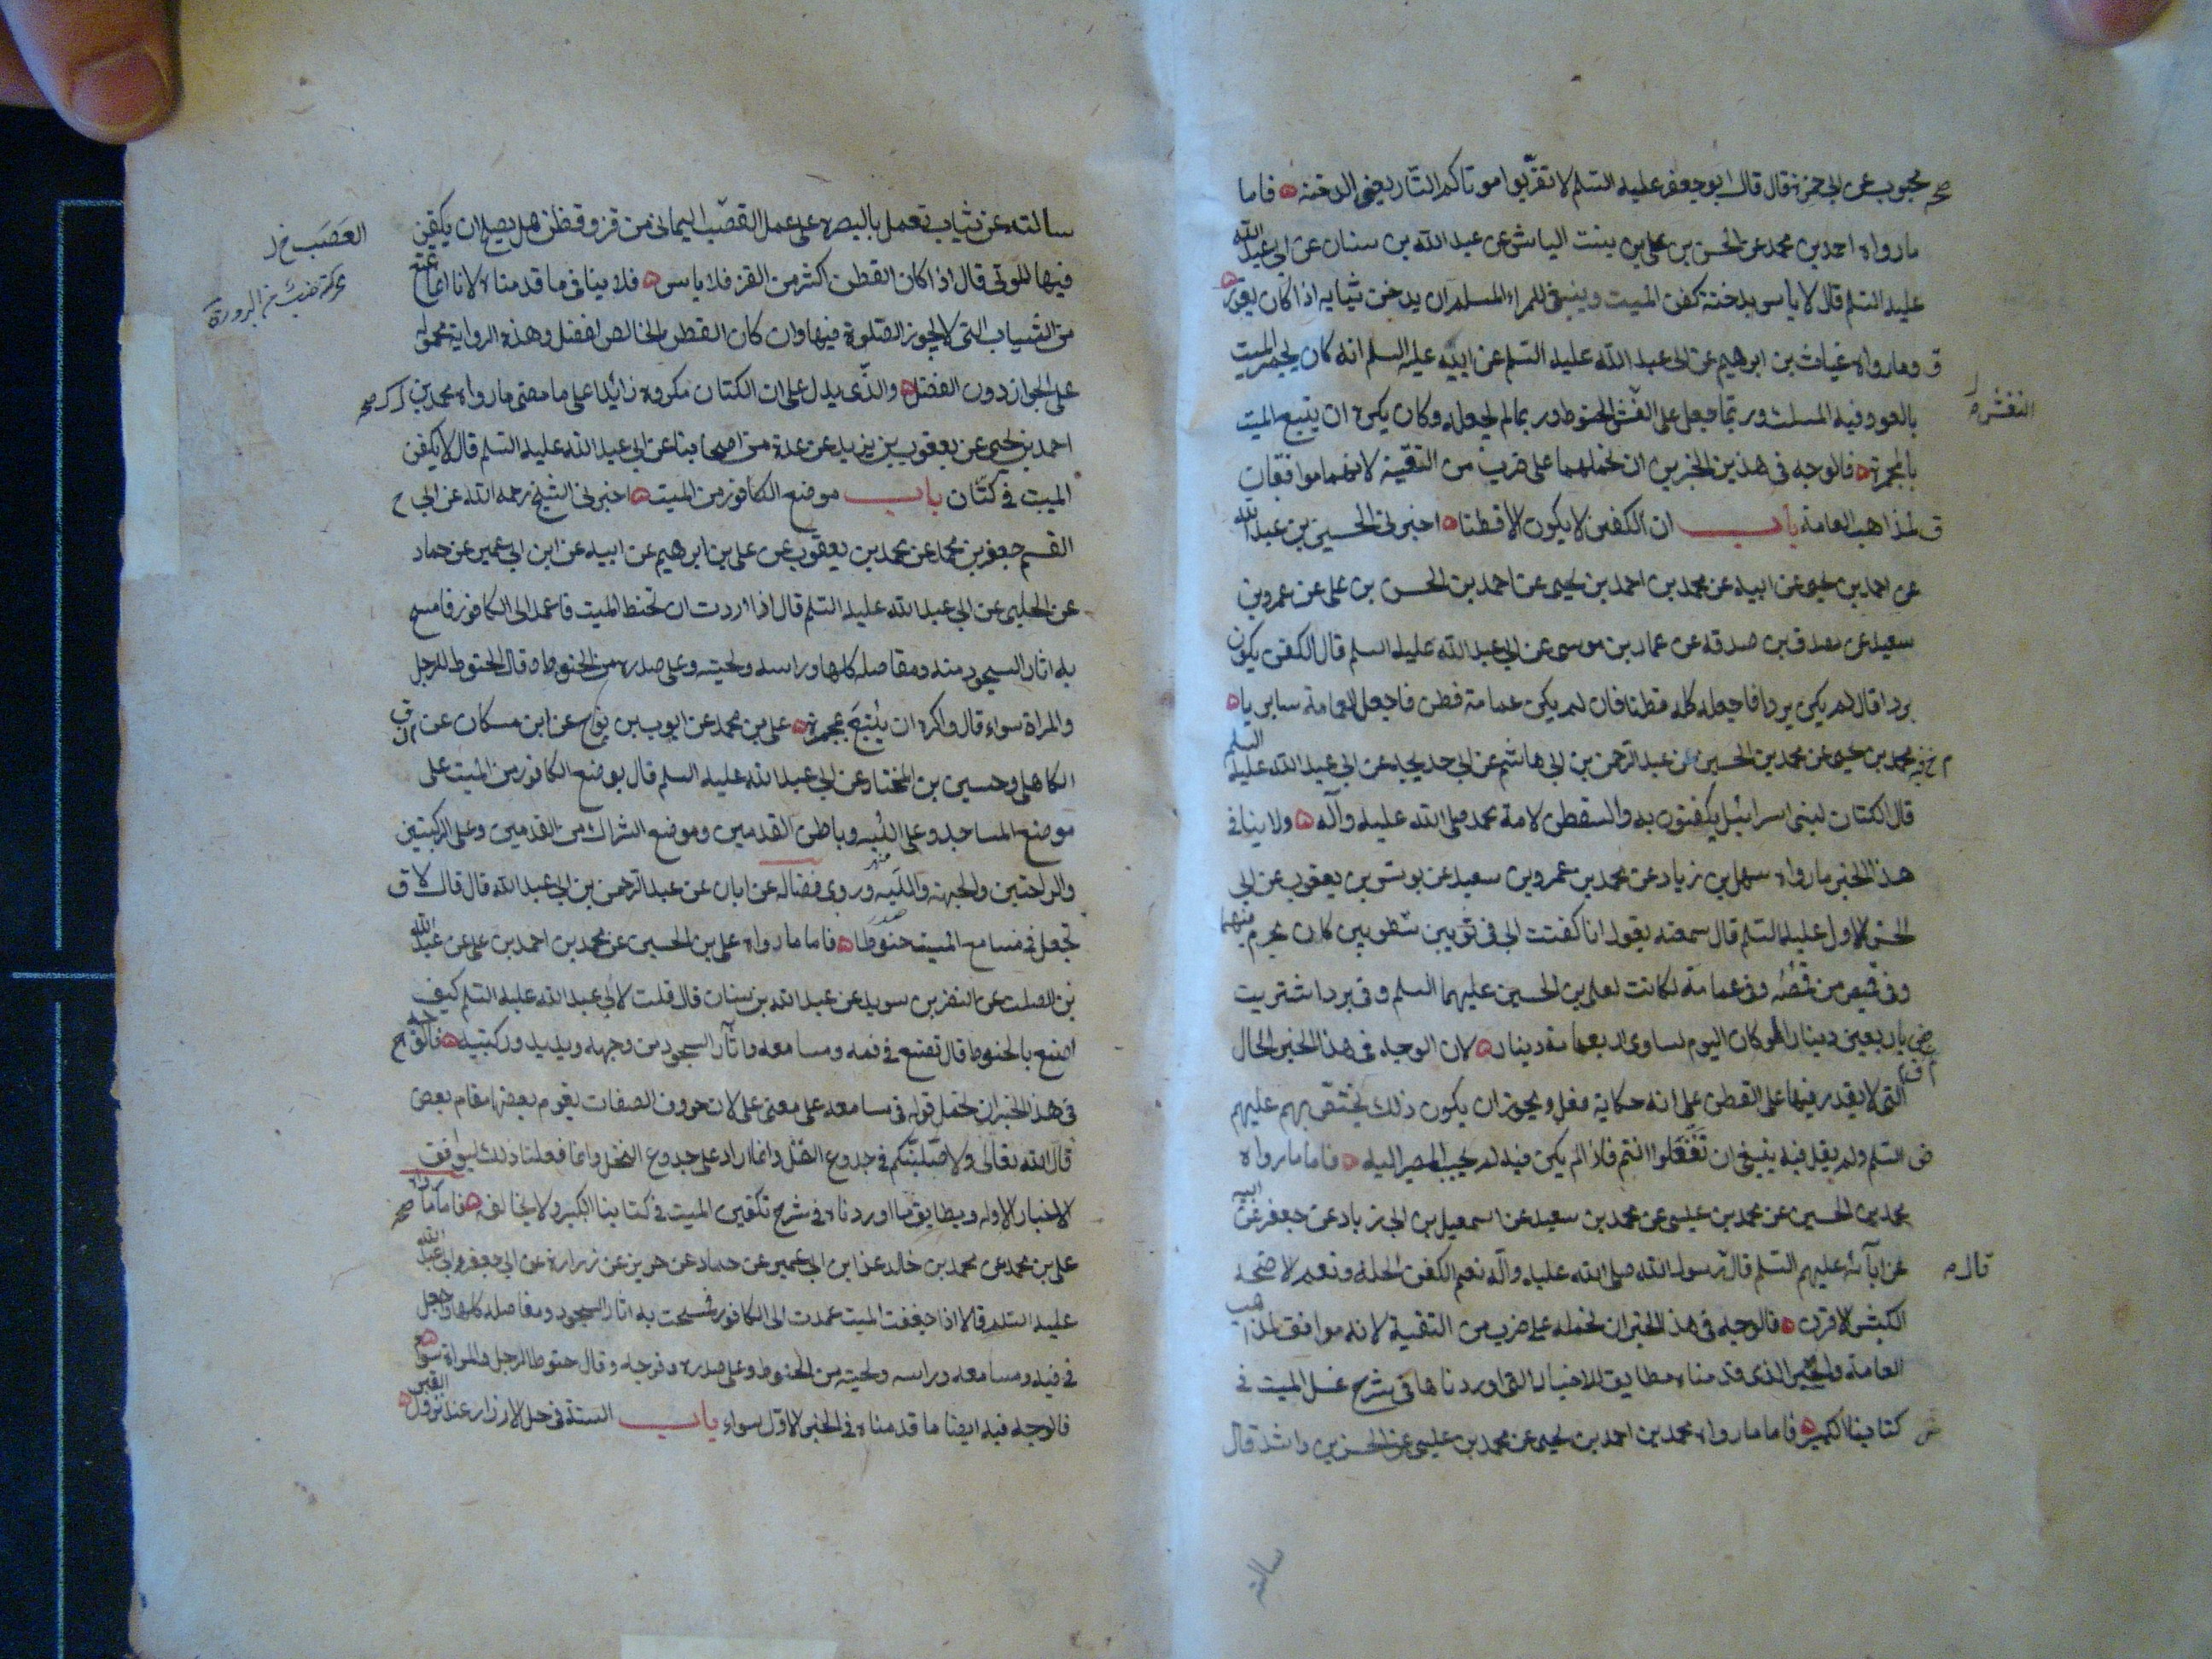 محبوب عن ابي حمزة قال قال ابو جعفر عليه السلم لا تقربوا موتاكم النار يعني الدخنة ه فاما
ما رواه احمد بن محمد عن الحسن بن علي بن بنت الياس عن عبد الله بن سنان عن ابي عبد الله
عليه السلم قال لا باس بدخنة كفن الميت وينبغي للمراء المسلم ان يدخن ثيابه اذا كان يقدر ه
وما رواه غياث بن ابرهيم عن ابي عبد الله عليه السلم عن ابيه عليه السلم انه كان يجمر الميت
بالعود فيه المسك وربما جعل على النعش الحنوط وربما لم يجعله وكان يكره ان يتبع الميت
بالمجمرة ه فالوجه في هذين الخبرين ان نحملهما على ضرب من التقية لانهما موافقان
لمذاهب العامة باب ان الكفن لا يكون الا قطنا ه اخبرني الحسين بن عبد الله
عن احمد بن يحيى عن ابيه عن محمد بن احمد بن يحيى عن احمد بن الحسن بن علي عن عمرو بن
سعيد عن مصدق بن صدقه عن عمار بن موسى عن ابي عبد الله عليه السلم قال الكفن يكون
بردا قال لم يكن بردا فاجعله كله قطنا فان لم يكن عمامة قطن فاجعل العمامة سابريا ه
محمد بن يحيى عن محمد بن الحسين عن عبد الرحمن بن ابي هاشم عن ابي خديجه عن ابي عبد الله عليه السلم
قال الكتان لبني اسرائيل يكفنون به والقطن لامة محمد صلى الله عليه وآله ه ولا ينافي
هذا الخبر ما رواه سهل بن زياد عن محمد بن عمرو بن سعيد عن يونس بن يعقوب عن ابي
الحسن الاول عليه السلم قال سمعته يقول انا كفنت ابي في ثوبين شطويين كان يحرم فيهما
وفي قميص من قمصه وفي عمامة كانت لعلي بن الحسين عليهما السلم وفي برد اشتريت
باربعين دينارا لو كان اليوم لساوى اربعمائة دينار ه لان الوجه في هذا الخبر الحال
التي لا يقدر فيها على القطن على انه حكاية فعل ويجوز ان يكون ذلك يختص بهم عليهم
السلم ولم يقل فيه ينبغي ان تفعلوا انتم فاذا لم يكن فيه لم يجب المصير اليه ه فاما ما رواه
محمد بن الحسين عن محمد بن عيسى عن محمد بن سعيد عن اسمعيل بن ابي زياد عن جعفر عن ابيه
عن آبائه عليهم السلم قال رسول الله صلى الله عليه وآله نعم الكفن الحلة ونعم الاضحية
الكبش الاقرن ه فالوجه في هذا الخبر ان نحمله على ضرب من التقية لانه موافق لمذاهب
العامة والخبر الذي قدمناه مطابق للاخبار التي اوردناها في شرح غسل الميت في
كتابنا الكبير ه فاما ما رواه محمد بن احمد بن يحيى عن محمد بن عيسى عن الحسن بن راشد قال
النعش
قال
سالته
سالته عن ثياب تعمل بالبصرة على عمل القصب اليماني من قز وقطن هل يصلح ان يكفن
فيها الموتى قال اذا كان القطن اكثر من القز فلا باس ه فلا ينافي ما قدمناه لانا انما نمنع
من الثياب التي لا يجوز الصلوة فيها وان كان القطن الخالص افضل وهذه الرواية محمولة
على الجواز دون الفضل ه والذي يدل على ان الكتان مكروه زائدا على ما مضى ما رواه محمد بن
احمد بن يحيى عن يعقوب بن يزيد عن عدة من اصحابنا عن ابي عبد الله عليه السلم قال لا يكفن
الميت في كتان باب موضع الكافور من الميت ه اخبرني الشيخ رحمه الله عن ابي
القسم جعفر بن محمد عن محمد بن يعقوب عن علي بن ابرهيم عن ابيه عن ابن ابي عمير عن حماد
عن الحلبي عن ابي عبد الله عليه السلم قال اذا اردت ان تحنط الميت فاعمد الى الكافور فامسح
به اثار السجود منه ومفاصله كلها وراسه ولحيته وعلى صدره من الحنوط وقال الحنوط للرجل
والمراة سواء قال واكره ان يتبع بمجمرة ه علي بن محمد عن ايوب بن نوح عن ابن مسكان عن
الكاهلي وحسين بن المختار عن ابي عبد الله عليه السلم قال يوضع الكافور من الميت على
موضع المساجد وعلى اللبه وباطن القدمين وموضع الشراك من القدمين وعلى الركبتين
والراحتين والجبهة واللبه وروى فضاله عن ابان عن عبد الرحمن بن ابي عبد الله قال قال لا
تجعل في مسامع الميت حنوطا ه فاما ما رواه علي بن الحسين عن محمد بن احمد بن علي عن عبد الله
بن الصلت عن النضر بن سويد عن عبد الله بن سنان قال قلت لابي عبد الله عليه السلم كيف
اصنع بالحنوط قال تضع في فمه ومسامعه وآثار السجود من وجهه ويديه وركبتيه ه فالوجه
في هذا الخبر ان نحمل قوله في مسامعه على معنى على لان حروف الصفات يقوم بعضها مقام بعض
قال الله تعالى ولاصلبنكم في جذوع النخل وانما اراد على جذوع النخل وانما فعلنا ذلك ليوافق
الاخبار الاوله ويطابق ما اوردناه في شرح تكفين الميت في كتابنا الكبير ولا يخالفه ه فاما ما رواه
علي بن محمد عن محمد بن خالد عن ابن ابي عمير عن حماد عن حريز عن زرارة عن ابي جعفر وابي عبد الله
عليه السلم قالا اذا جففت الميت عمدت الى الكافور فمسحت به اثار السجود ومفاصله كلها واجعل
في فيه ومسامعه وراسه ولحيته من الحنوط وعلى صدره وفرجه وقال حنوط الرجل والمراة سواء ه
فالوجه فيه ايضا ما قدمناه في الخبر الاول سواء باب السنة في حل الازرار عند نزول القبر ه
العصب خ ل